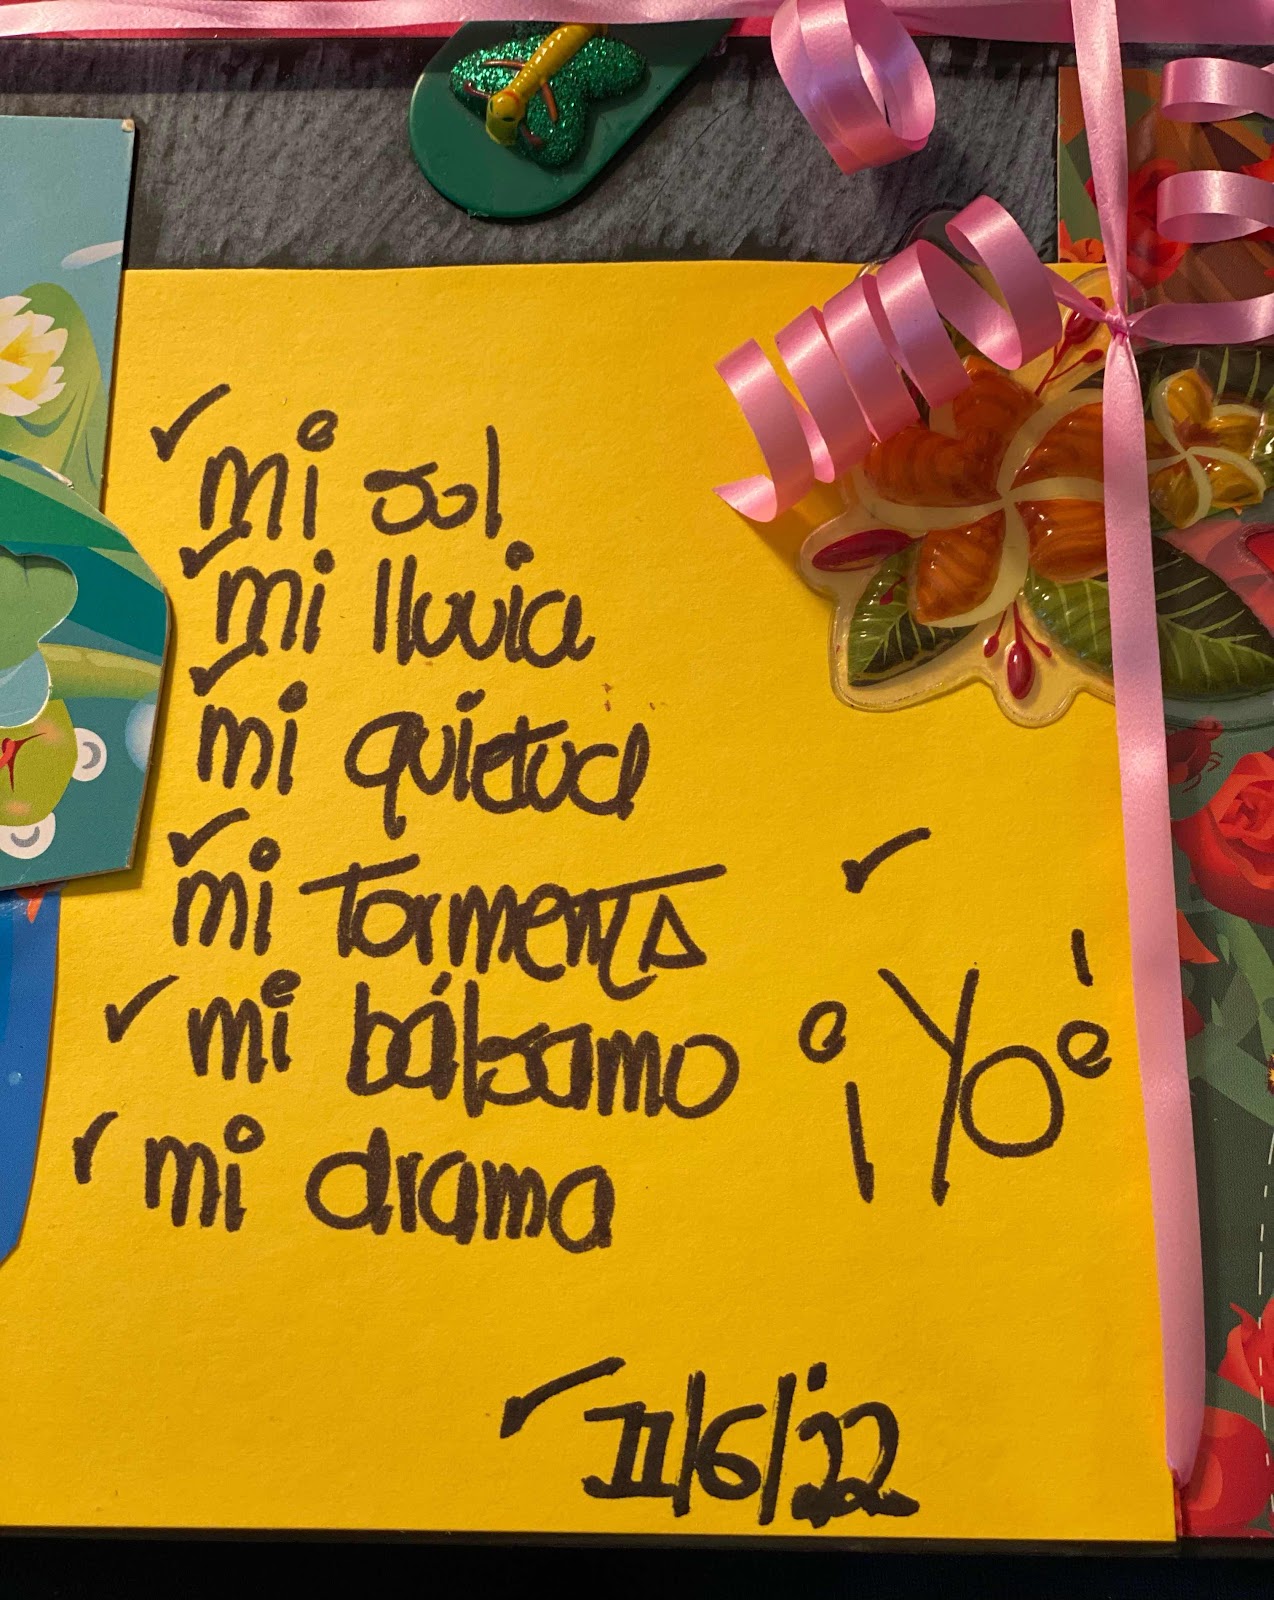 ✓ mi sol
✓ mi lluvia
✓ mi quietud
✓ mi tormenta
✓ mi bálsamo
✓ ¡Yo!
✓ mi drama
✓ 11/6/22